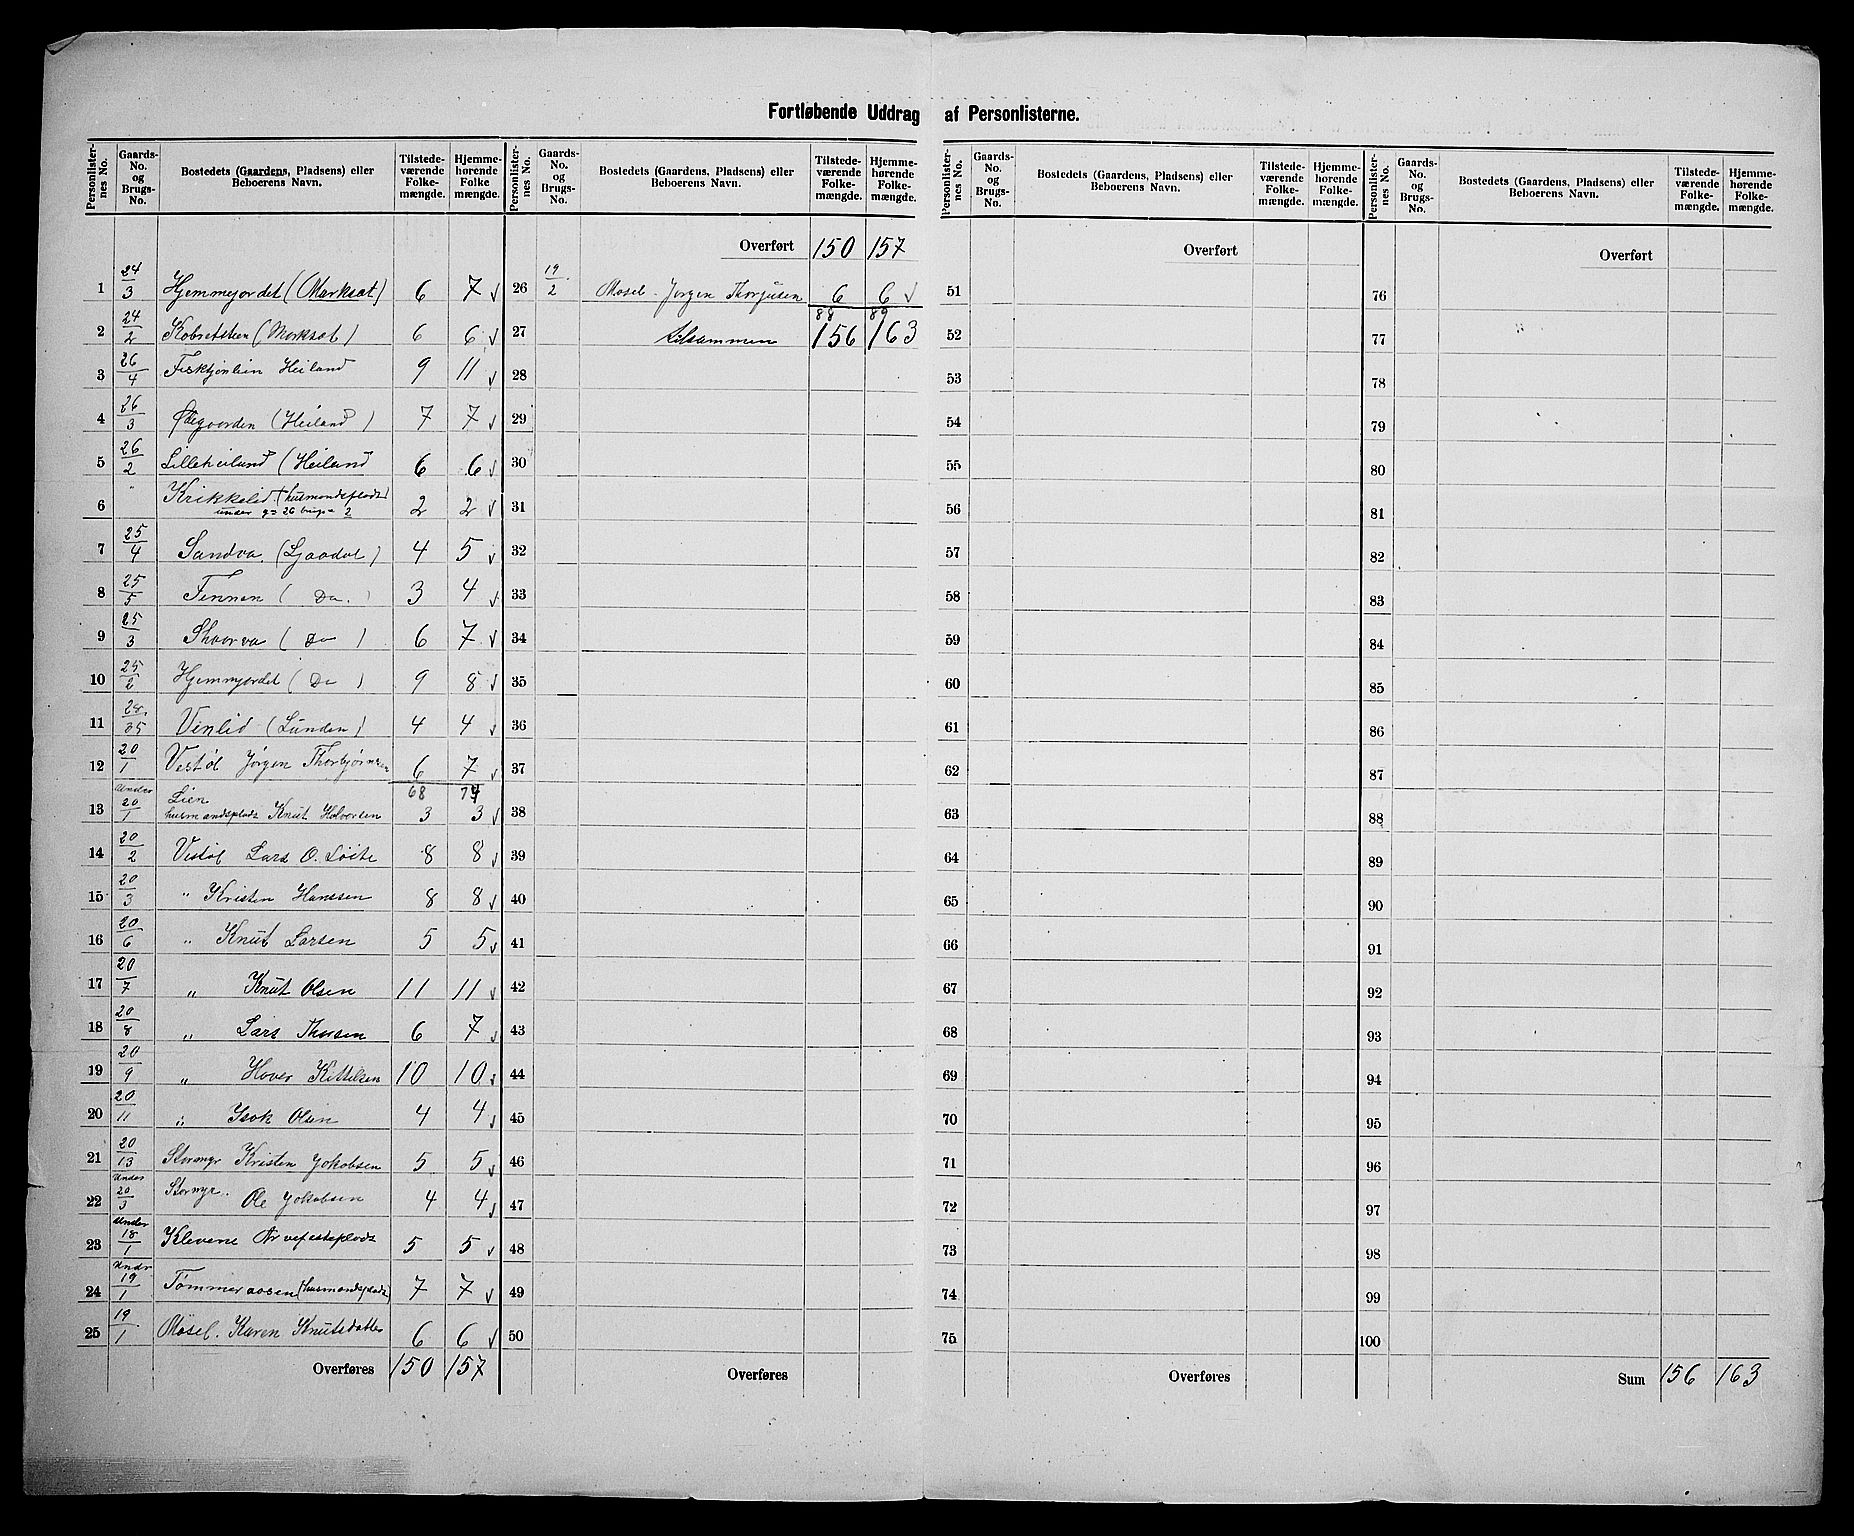 Fortløbende Uddrag af Personlisterne.
Personlister-nes No. | Gaards-No. og Brugs-No. | Bostedets (Gaardens, Pladsens) eller Beboerens Navn. | Tilstede-værende Folke-mængde. | Hjemme-hørende Folke mængde.
1 | 24/3 | Hjemmejordet (Marksæt) | 6 | 7 v
2 | 24/2 | (Marksæt) | 6 | 6 v
3 | 26/4 | Heiland | 9 | 11 v
4 | 26/3 | Øegaarden (Heiland) | 7 | 7 v
5 | 26/2 | Lilleheiland (Heiland | 6 | 6 v
6 | " | Krikkelid (husmandsplads)
under g= 26 brugs= 2 | 2 | 2 v
7 | 25/4 | Sandva (Ljaadal) | 4 | 5 v
8 | 25/5 | Finnen ( Do. ) | 3 | 4 v
9 | 25/3 | Skaarva ( Do ) | 6 | 7 v
10 | 25/2 | Hjemmjordet ( Do ) | 9 | 8 v
11 | 28/35 | Vinlid (Lunden) | 4 | 4 v
12 | 20/1 | Vestøl Jørgen Thorbjørnsen | 6 | 7 v
68 | 74
13 | Under 20/1 | Lien
husmandsplads Knut Halvorsen | 3 | 3 v
14 | 20/2 | Vestøl Lars O. Løite | 8 | 8 v
15 | 20/3 | " Kristen Hanssen | 8 | 8 v
16 | 20/6 | " Knut Larsen | 5 | 5 v
17 | 20/7 | " Knut Olsen | 11 | 11 v
18 | 20/8 | " Lars Thorsen | 6 | 7 v
19 | 20/9 | " Haver Kittelsen | 10 | 10 v
20 | 20/11 | " Isak Olsen | 4 | 4 v
21 | 20/13 | Stormyr Kristen Jakobsen | 5 | 5 v
22 | Under 20/3 | Stormyr. Ole Jakobsen | 4 | 4 v
23 | Under 18/1 | Klevene Arvefesteplads | 5 | 5 v
24 | Undr 19/1 | Tømmeraasen (husmandsplads) | 7 | 7 v
25 | 19/1 | Møsel. Karen Knutsdatter | 6 | 6 v
Overføres | 150 | 157
Personlister-nes No. | Gaards-No. og Brugs-No. | Bostedets (Gaardens, Pladsens) eller Beboerens Navn. | Tilstede-værende Folke-mængde. | Hjemme-hørende Folke-mængde.
Overført | 150 | 157
26 | 19/2 | Møsel. Jørgen Thorjusen | 6 | 6 v
88 | 89
27 | tilsammen | 156 | 163
28
29
30
31
32
33
34
35
36
37
38
39
40
41
42
43
44
45
46
47
48
49
50
Overføres
Personlister-nes No. | Gaards-No. og Brugs-No. | Bostedets (Gaardens, Pladsens) eller Beboerens Navn. | Tilstede-værende Folke-mængde. | Hjemme-hørende Folke-mængde.
Overført
51
52
53
54
55
56
57
58
59
60
61
62
63
64
65
66
67
68
69
70
71
72
73
74
75
Overføres
Personlister-nes No. | Gaards-No. og Brugs-No. | Bostedets (Gaardens, Pladsens) eller Beboerens Navn. | Tilstede-værende Folke-mængde. | Hjemme-hørende Folke-mængde.
Overført
76
77
78
79
80
81
82
83
84
85
86
87
88
89
90
91
92
93
94
95
96
97
98
99
100
Sum | 156 | 163